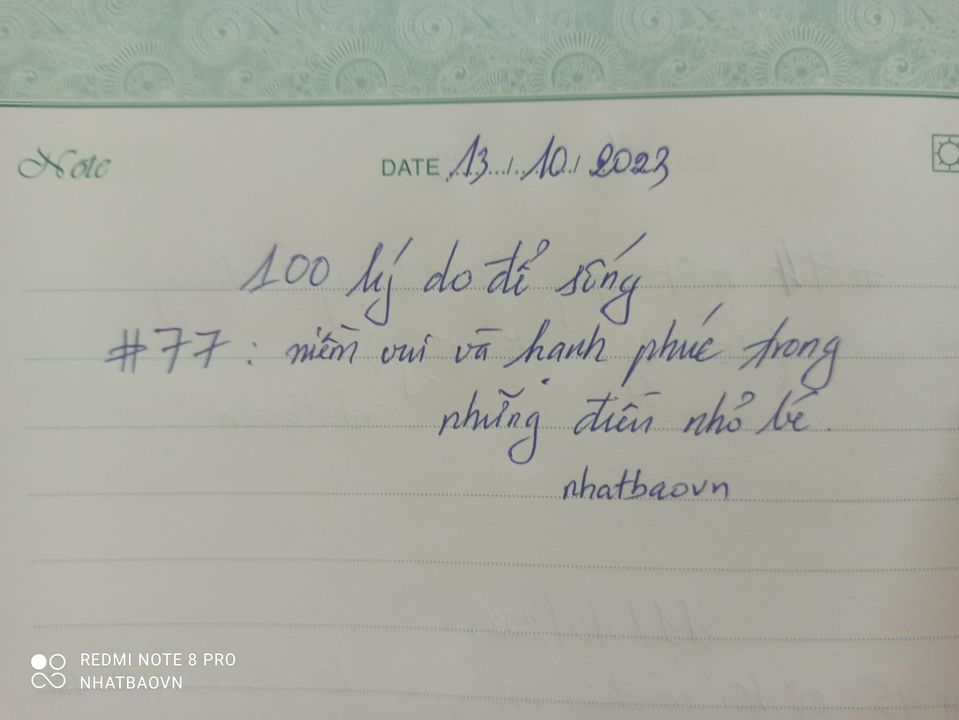 Note
DATE 13/10/2023
100 lý do để sống
#77: niềm vui và hạnh phúc trong
những điều nhỏ bé.
nhatbaovn
REDMI NOTE 8 PRO
NHATBAOVN